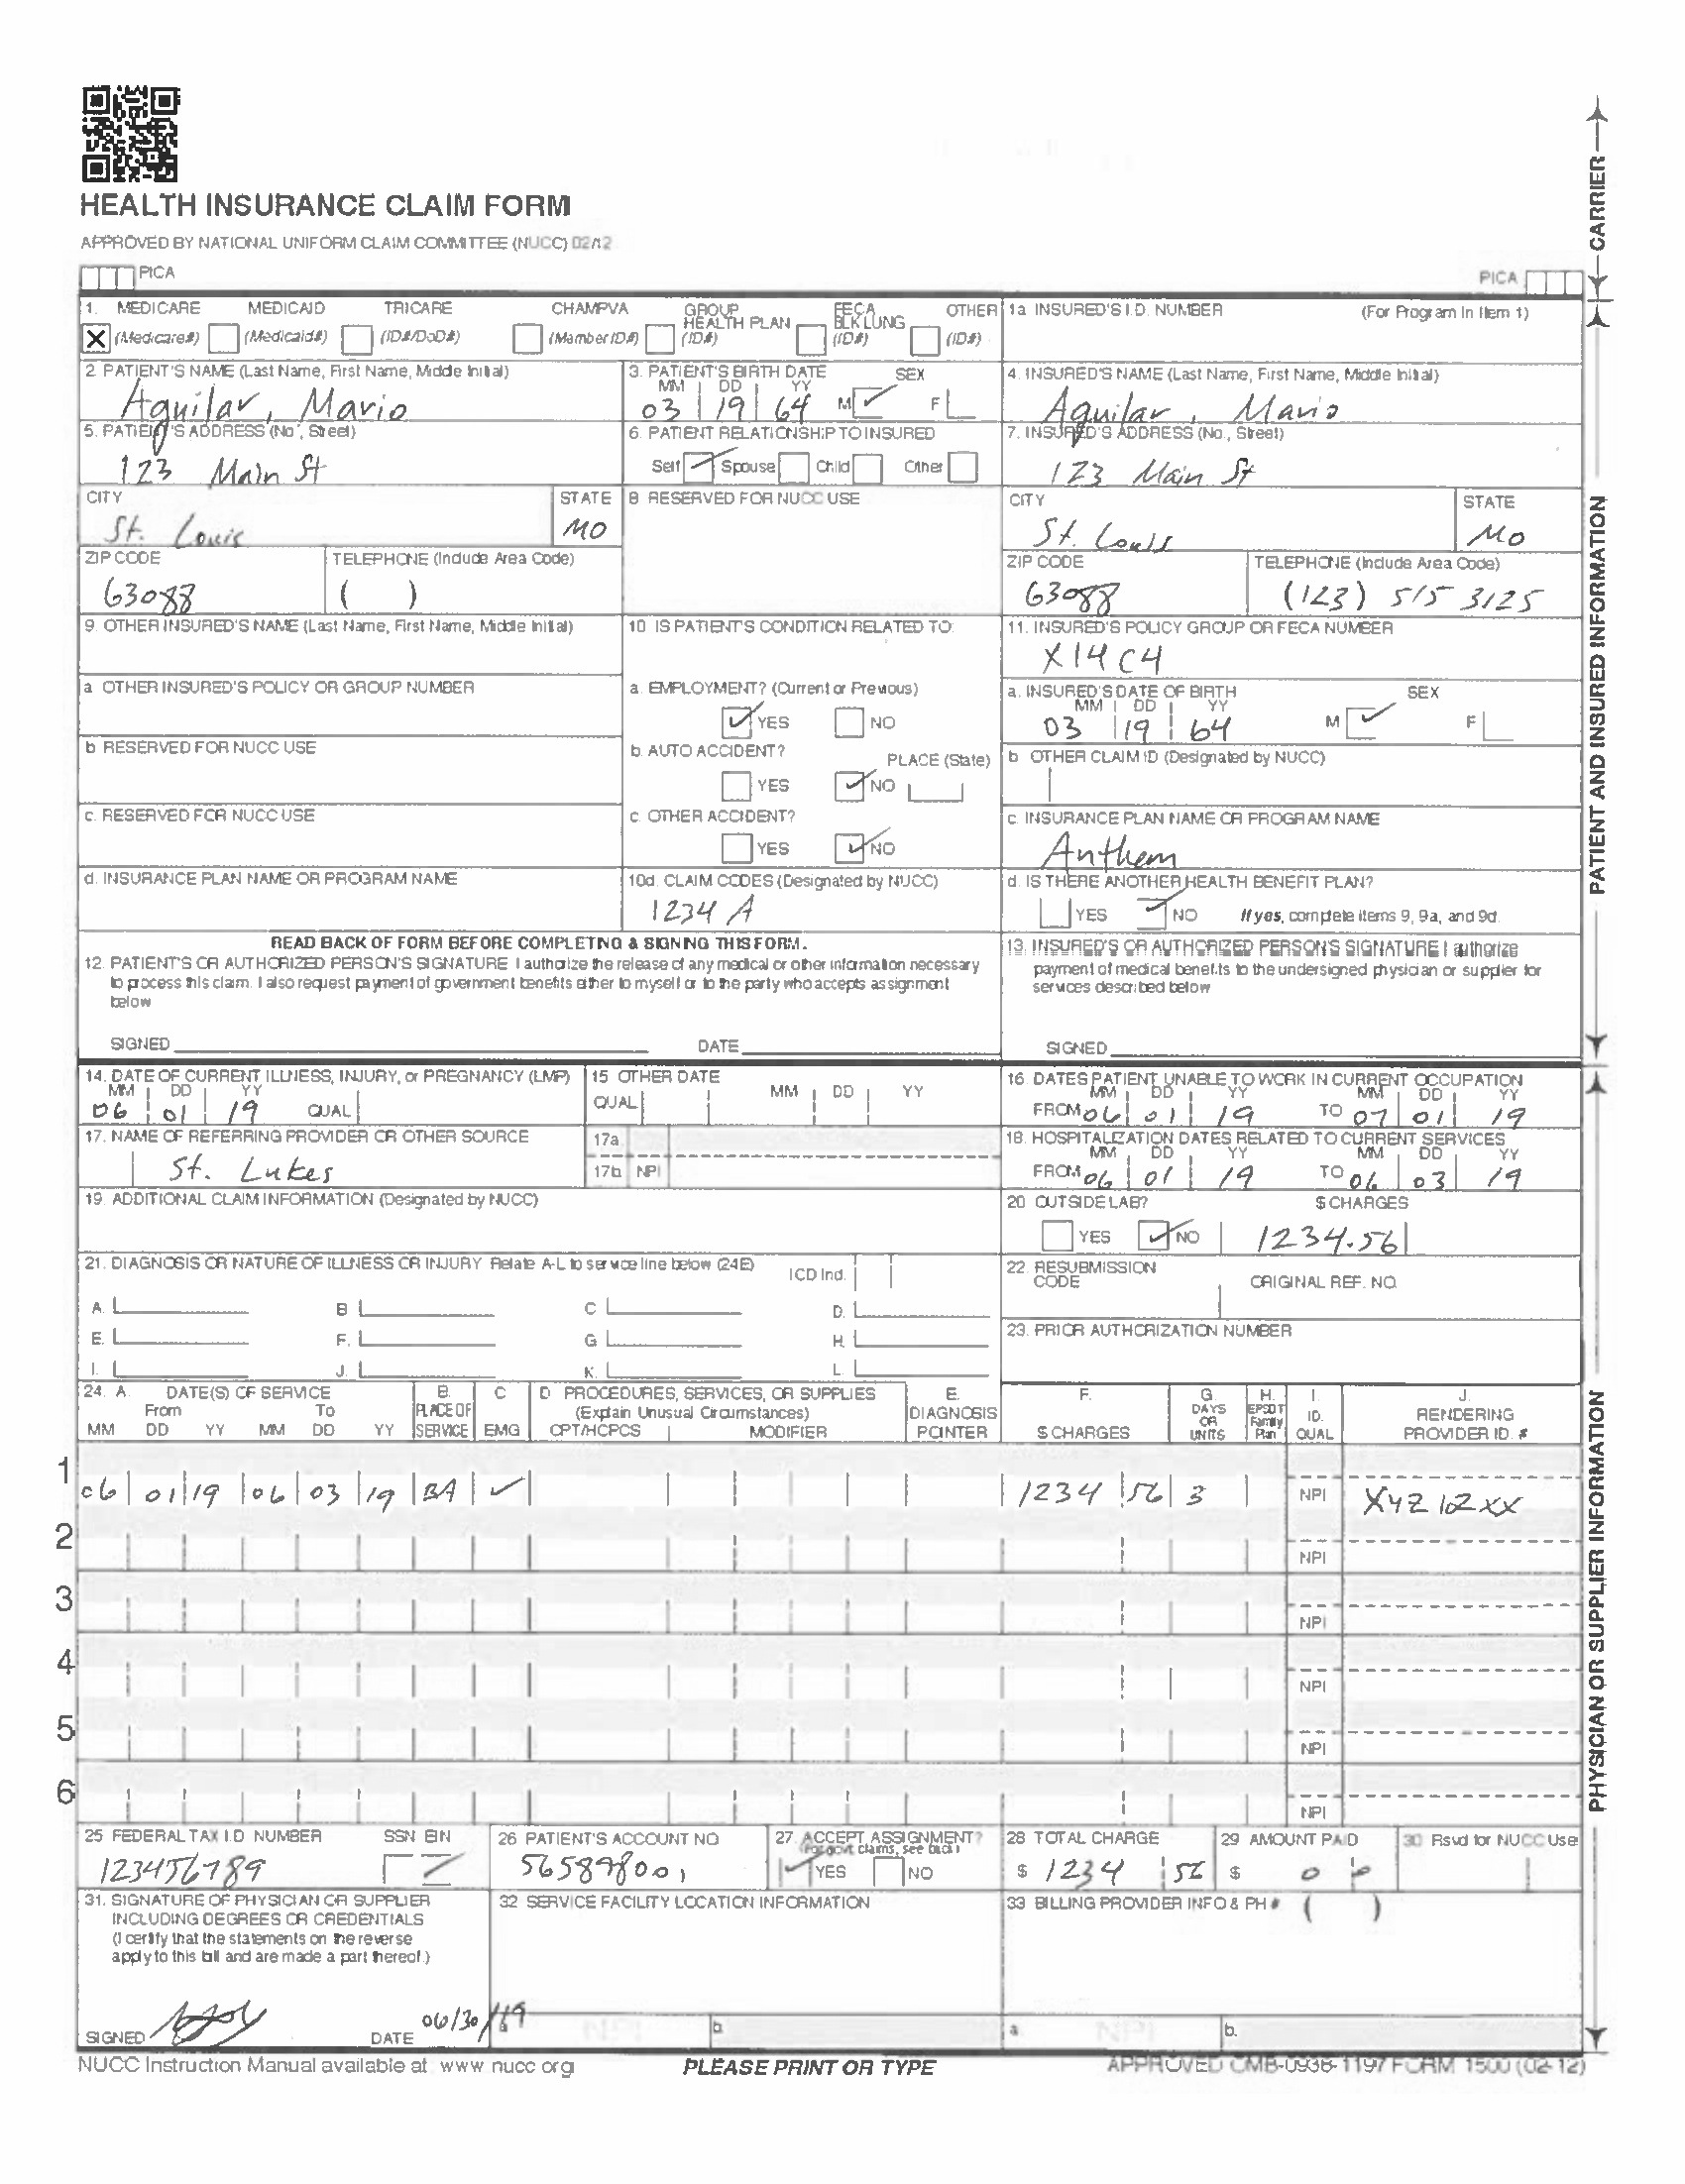 HEALTH INSURANCE CLAIM FORM
APPROVED BY NATIONAL UNIFORM CLAIM COMMITTEE (NUCC) 02/12
PICA
PICA
CARRIER
1. MEDICARE MEDICAID TRICARE CHAMPVA GROUP HEALTH PLAN FECA BLK LUNG OTHER
X (Medicare#) (Medicaid#) (ID#/DoD#) (Member ID#) (ID#) (ID#) (ID#)
1a INSURED'S I.D. NUMBER (For Program in Item 1)
2. PATIENT'S NAME (Last Name, First Name, Middle Initial)
Aguilar, Mario
3. PATIENT'S BIRTH DATE SEX
MM DD YY
03 19 64 M ✓ F
4. INSURED'S NAME (Last Name, First Name, Middle Initial)
Aguilar, Mario
5. PATIENT'S ADDRESS (No., Street)
123 Main St
6. PATIENT RELATIONSHIP TO INSURED
Self Spouse Child Other
7. INSURED'S ADDRESS (No., Street)
123 Main St
CITY STATE
St. Louis MO
8 RESERVED FOR NUCC USE
CITY STATE
St. Louis MO
ZIP CODE TELEPHONE (Include Area Code)
63088 ( )
ZIP CODE TELEPHONE (Include Area Code)
63088 (123) 515 3125
9. OTHER INSURED'S NAME (Last Name, First Name, Middle Initial)
10 IS PATIENT'S CONDITION RELATED TO:
11. INSURED'S POLICY GROUP OR FECA NUMBER
X14C4
a OTHER INSURED'S POLICY OR GROUP NUMBER
a. EMPLOYMENT? (Current or Previous)
✓ YES NO
a. INSURED'S DATE OF BIRTH SEX
MM DD YY
03 19 64 M ✓ F
b RESERVED FOR NUCC USE
b AUTO ACCIDENT? PLACE (State)
YES ✓ NO
b OTHER CLAIM ID (Designated by NUCC)
c. RESERVED FOR NUCC USE
c. OTHER ACCIDENT?
YES ✓ NO
c. INSURANCE PLAN NAME OR PROGRAM NAME
Anthem
d. INSURANCE PLAN NAME OR PROGRAM NAME
10d. CLAIM CODES (Designated by NUCC)
1234 A
d. IS THERE ANOTHER HEALTH BENEFIT PLAN?
YES ✓ NO If yes, complete items 9, 9a, and 9d.
READ BACK OF FORM BEFORE COMPLETING & SIGNING THIS FORM.
12. PATIENT'S OR AUTHORIZED PERSON'S SIGNATURE I authorize the release of any medical or other information necessary
to process this claim. I also request payment of government benefits either to myself or to the party who accepts assignment
below
SIGNED DATE
13. INSURED'S OR AUTHORIZED PERSON'S SIGNATURE I authorize
payment of medical benefits to the undersigned physician or supplier for
services described below
SIGNED
PATIENT AND INSURED INFORMATION
14. DATE OF CURRENT ILLNESS, INJURY, or PREGNANCY (LMP)
MM DD YY
06 01 19 QUAL
15 OTHER DATE
QUAL MM DD YY
16. DATES PATIENT UNABLE TO WORK IN CURRENT OCCUPATION
MM DD YY MM DD YY
FROM 06 01 19 TO 07 01 19
17. NAME OF REFERRING PROVIDER OR OTHER SOURCE
St. Lukes
17a
17b NPI
18. HOSPITALIZATION DATES RELATED TO CURRENT SERVICES
MM DD YY MM DD YY
FROM 06 01 19 TO 06 03 19
19. ADDITIONAL CLAIM INFORMATION (Designated by NUCC)
20 OUTSIDE LAB? $ CHARGES
YES ✓ NO 1234.56
21. DIAGNOSIS OR NATURE OF ILLNESS OR INJURY Relate A-L to service line below (24E) ICD Ind.
A. B C D.
E. F. G H.
I. J. K. L.
22. RESUBMISSION CODE ORIGINAL REF. NO.
23. PRIOR AUTHORIZATION NUMBER
24. A DATE(S) OF SERVICE B. C D PROCEDURES, SERVICES, OR SUPPLIES E. F. G. H. I. J.
From To PLACE OF SERVICE EMG (Explain Unusual Circumstances) DIAGNOSIS POINTER $ CHARGES DAYS OR UNITS EPSDT Family Plan ID. QUAL RENDERING PROVIDER ID. #
MM DD YY MM DD YY CPT/HCPCS MODIFIER
1 06 01 19 06 03 19 BA ✓ 1234 56 3 NPI
2 NPI
3 NPI
4 NPI
5 NPI
6 NPI
25 FEDERAL TAX I.D NUMBER SSN EIN
123456789
26 PATIENT'S ACCOUNT NO
565898001
27. ACCEPT ASSIGNMENT?
(For govt. claims, see back)
✓ YES NO
28 TOTAL CHARGE
$ 1234 56
29 AMOUNT PAID
$ 0 0
30 Rsvd for NUCC Use
31. SIGNATURE OF PHYSICIAN OR SUPPLIER
INCLUDING DEGREES OR CREDENTIALS
(I certify that the statements on the reverse
apply to this bill and are made a part thereof.)
SIGNED DATE 06/30/19
32 SERVICE FACILITY LOCATION INFORMATION
a NPI b
33 BILLING PROVIDER INFO & PH # ( )
a NPI b.
PHYSICIAN OR SUPPLIER INFORMATION
NUCC Instruction Manual available at www nucc org
PLEASE PRINT OR TYPE
APPROVED OMB-0938-1197 FORM 1500 (02-12)